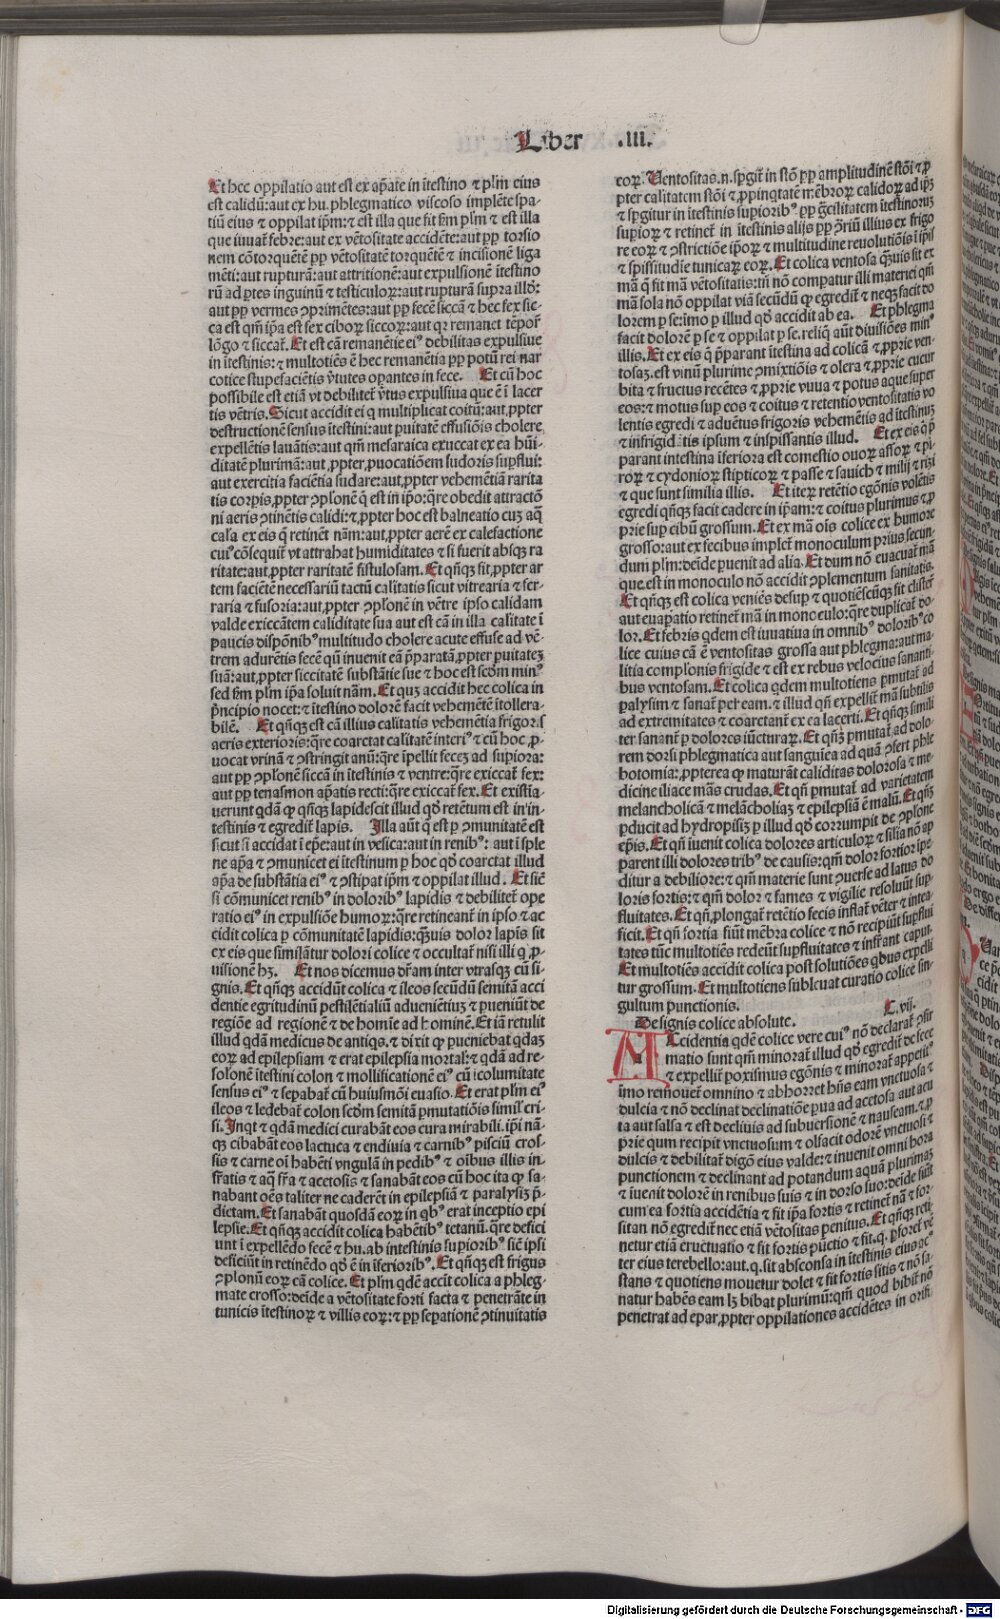 Liber .III.
Et hec oppilatio aut est ex aꝑ̄ate in ītestino ⁊ plm̄ eius
est calidū: aut ex hu. phlegmatico viscoso implēte spa-
tiū eius ⁊ oppilat ip̄m: ⁊ est illa que fit ẜm plm̄ ⁊ est illa
que iuuat̄ febre: aut ex vētositate accidēte: aut ꝓp torsio
nem cōtorquētē ꝓp vētositatē torquētē ⁊ incisionē liga
mēti: aut rupturā: aut attritionē: aut expulsionē ītestino
rū ad ꝑtes inguinū ⁊ testiculoꝝ: aut rupturā supra illd̄:
aut ꝓp vermes ꝯprimētes: aut ꝓp fecē siccā ⁊ hec fex sic-
ca est qm̄ ip̄a est fex ciboꝝ siccoꝝ: aut qꝛ remanet tēpor̄
lōgo ⁊ siccat̄. Et est cā remanētie ei⁹ debilitas expulsiue
in ītestinis: ⁊ multotiēs ē hec remanētia ꝓp potū rei nar
cotice stupefaciētis v̓tutes oꝑantes in fece. Et cū hoc
possibile est etiā vt debilitet̄ v̓tus expulsiua que ē ī lacer
tis vētris. Sicut accidit ei q multiplicat coitū: aut ꝓpter
destructionē sensus ītestini: aut puitatē effusiōis cholere
expellētis lauātis: aut qm̄ mesaraica exuccat ex ea hūi-
ditatē plurimā: aut ꝓpter ꝓuocatiōem sudoris suꝑflui:
aut exercitia faciētia sudare: aut ꝓpter vehemētiā rarita
tis corꝑis ꝓpter ꝯplonē q̄ est in ip̄o: q̄re obedit attractō
ni aeris ꝯtinētis calidi: ⁊ ꝓpter hoc est balneatio cuꝫ aq̄
calīa ex eis q̄ retinēt nām: aut ꝓpter aerē ex calefactione
cui⁹ cōsequit̄ vt attrahat humiditates ⁊ si fuerit absqꝫ ra
ritate: aut ꝓpter raritatē fistulosam. Et qn̄qꝫ fit ꝓpter ar
tem faciētē necessariū tactū calitatis sicut vitrearia ⁊ fer-
raria ⁊ fusoria: aut ꝓpter ꝯplonē in vētre ipso calidam
valde exiccātem caliditate sua aut est cā in illa calitate ī
paucis dispōnib⁹ multitudo cholere acute effuse ad vē-
trem adurētis fecē qū inuenit eā p̄paratā ꝓpter puitateꝫ
suā: aut ꝓpter siccitatē substātie sue ⁊ hoc est scd̄m min⁹
sed ẜm plm̄ ip̄a soluit nām. Et quꝫ accidit hec colica in
p̄ncipio nocet: ⁊ ītestino dolorē facit vehemētē ītollera-
bilē. Et qn̄qꝫ est cā illius calitatis vehemētia frigoris
aeris exterioris: q̄re coarctat calitatē interi⁹ ⁊ cū hoc ꝓ-
uocat vrinā ⁊ ꝯstringit anū: q̄re īpellit feceꝫ ad supiora:
aut ꝓp ꝯplonē siccā in ītestinis ⁊ ventre: q̄re exiccat̄ fex:
aut ꝓp tenasmon aꝑatis recti: q̄re exiccat̄ fex. Et existīa-
uerunt qdā ꝙ qn̄qꝫ lapidescit illud qd̄ retētum est in in-
testinis ⁊ egredit̄ lapis. Illa aūt q̄ est ꝑ ꝯmunitatē est
sicut si accidat ī epe: aut in vesica: aut in renib⁹: aut ī sple
ne aꝑa ⁊ ꝯmunicet ei ītestinum ꝑ hoc qd̄ coarctat illud
aꝑa de substātia ei⁹ ⁊ ꝯstipat ip̄m ⁊ oppilat illud. Et siē
si cōmunicet renib⁹ in dolorib⁹ lapidis ⁊ debilitet̄ ope
ratio ei⁹ in expulsiōe humoꝝ: q̄re retineant̄ in ipso ⁊ ac
cidit colica ꝑ cōmunitatē lapidis: qꝫuis dolor lapis sit
ex eis que similāt̄ur dolori colice ⁊ occultat̄ nisi illi q ꝓ-
uisionē hꝫ. Et nos dicemus dr̄am inter vtrasqꝫ cū si-
gnis. Et qn̄qꝫ accidūt colica ⁊ īleos secūdū semitā acci
dentie egritudinū pestilētialiū adueniētiuꝫ ⁊ ꝑueniūt de
regiōe ad regionē ⁊ de homīe ad hominē. Et iā retulit
illud qdā medicus de antiqs. ⁊ dixit ꝙ ꝑueniebat qdaꝫ
eoꝝ ad epilepsiam ⁊ erat epilepsia mortal̓: ⁊ qdā ad re-
solonē ītestini colon ⁊ mollificationē ei⁹ cū īcolumitate
sensus ei⁹ ⁊ sepabat̄ cū huiusmōi euasio. Et erat plm̄ ei⁹
īleos ⁊ ledebat̄ colon scd̄m semitā ꝑmutatiōis simil̓ cri-
si. Inqt ⁊ qdā medici curabāt eos cura mirabili. ip̄i nā-
qꝫ cibabāt eos lactuca ⁊ endiuia ⁊ carnib⁹ pisciū cros-
sis ⁊ carne oī habēti vngulā in pedib⁹ ⁊ oībus illis in-
fr̄atis ⁊ aq̄ fr̄a ⁊ acetosis ⁊ sanabāt eos cū hoc ita ꝙ sa-
nabant oēs taliter ne caderēt in epilepsiā ⁊ paralysiꝫ p̄-
dictam. Et sanabāt quosdā eoꝝ in qb⁹ erat inceptio epi
lepsie. Et qn̄qꝫ accidit colica habētib⁹ tetanū. q̄re defici
unt ī expellēdo fecē ⁊ hu. ab intestinis supiorib⁹ siē ipsi
deficiūt in retinēdo qd̄ ē in īferiorib⁹. Et qn̄qꝫ est frigus
ꝯplonū eoꝝ cā colice. Et plm̄ qdē accit colica a phleg-
mate crosso: deīde a vētositate forti facta ⁊ penetrāte in
tunicis ītestinoꝝ ⁊ villis eoꝝ: ⁊ ꝓp sepationē ꝯtinuitatis
eoꝝ. Uentositas .n. sp̄git̄ in stō ꝓp amplitudinē stōi ⁊ ꝓ
pter calitatem stōi ⁊ ꝓpinqtatē mēbroꝝ calidoꝝ ad ip̄ꝫ
⁊ sp̄gitur in ītestinis supiorib⁹ ꝓp gr̄cilitatem ītestinorum
supioꝝ ⁊ retinet̄ in ītestinis alijs ꝓp ꝯriū illius ex frigo
re eoꝝ ⁊ ꝯstrictiōe ip̄oꝝ ⁊ multitudine reuolutiōis ī ip̄is
⁊ spissitudīe tunicaꝝ eoꝝ. Et colica ventosa qꝫuis fit ex
mā q̄ fit mā vētositatis: tn̄ nō compatur illi materiei qm̄
mā sola nō oppilat viā secūdū ꝙ egredit̄ ⁊ neqꝫ facit do
lorem ꝑ se: īmo ꝑ illud qd̄ accidit ab ea. Et phlegma
facit dolorē ꝑ se ⁊ oppilat ꝑ se. reliq̄ aūt diuisiōes min⁹
illis. Et ex eis q̄ p̄parant ītestina ad colicā ⁊ ꝓprie ven-
tosaꝫ. est vinū plurime ꝯmixtiōis ⁊ olera ⁊ ꝓprie cucur
bita ⁊ fructus recētes ⁊ ꝓprie vuua ⁊ potus aque super
eos: ⁊ motus sup eos ⁊ coitus ⁊ retentio ventositatis vo
lentis egredi ⁊ aduētus frigoris vehemētis ad ītestinuꝫ
⁊ infrigidātis ipsum ⁊ inspissantis illud. Et ex eis q̄ p̄
parant intestina īferiora est comestio ouoꝝ assoꝝ ⁊ pi-
roꝝ ⁊ cydonioꝝ stipticoꝝ ⁊ passe ⁊ sauich ⁊ milij ⁊ rizi
⁊ que sunt similia illis. Et iteꝝ retētio egōnis volētis
egredi qn̄qꝫ facit cadere in ip̄am: ⁊ coitus plurimus ⁊ ꝓ
prie sup cibū grossum. Et ex mā oīs colice ex humore
grosso: aut ex fecibus implet̄ monoculum prius secun-
dum plm: deīde ꝑuenit ad alia. Et dum nō euacuat̄ mā
que est in monoculo nō accidit ꝯplementum sanitatis.
Et qn̄qꝫ est colica veniēs desup ⁊ quotiēscūqꝫ fit clister̄
aut euapatio retinet̄ mā in monoculo: q̄re duplicat̄ do-
lor. Et febris qdem est iuuatiua in omnib⁹ dolorib⁹ co
lice cuius cā ē ventositas grossa aut phlegma: aut ma-
litia complonis frigide ⁊ est ex rebus velocius sananti-
bus ventosam. Et colica qdem multotiens ꝑmutat̄ ad
palysim ⁊ sanat̄ per eam. ⁊ illud qn̄ expellit̄ mā subtilis
ad extremitates ⁊ coaretant̄ ex ea lacerti. Et qn̄qꝫ simili
ter sanant̄ ꝑ dolores iūcturaꝝ. Et qn̄qꝫ ꝑmutat̄ ad dolo-
rem dorsi phlegmatica aut sanguīea ad quā ꝯfert phle
bothomia: ꝓpterea ꝙ maturāt caliditas dolorosa ⁊ me-
dicine iliace mās crudas. Et qn̄ ꝑmutat̄ ad varietatem
melancholicā ⁊ melācholiaꝫ ⁊ epilepsiā ē malū. Et qn̄qꝫ
ꝑducit ad hydropisiꝫ ꝑ illud qd̄ corrumpit de ꝯplone
epis. Et qn̄ iuenit colica dolores articuloꝝ ⁊ silia nō ap
parent illi dolores trib⁹ de causis: qm̄ dolor fortior īpe-
ditur a debiliore: ⁊ qm̄ materie sunt ꝯuerse ad latus do
loris fortis: ⁊ qm̄ dolor ⁊ fames ⁊ vigilie resoluūt sup-
fluitates. Et qn̄ ꝓlongat̄ retētio fecis inflat̄ vēter ⁊ intea
ficit. Et qn̄ fortia fiūt mēbra colice ⁊ nō recipiūt supflui
tates tūc multotiēs redeūt supfluitates ⁊ infr̄ant caput.
Et multotiēs accidit colica post solutiōes qbus expelli
tur grossum. Et multotiens subleuat curatio colice sin-
gultum punctionis.
De signis colice absolute. C.vij.
Accidentia qdē colice vere cui⁹ nō declarat̄ ꝯfir
matio sunt qm̄ minorat̄ illud qd̄ egredit̄ de fece
⁊ expellit̄ ꝑoxismus egōnis ⁊ minorat̄ appetit⁹
īmo remouet̄ omnino ⁊ abhorret hn̄s eam vnctuosa ⁊
dulcia ⁊ nō declinat declinatiōe ꝑua ad acetosa aut acu
ta aut salsa ⁊ est decliuis ad subuersionē ⁊ nauseam. ⁊ ꝓ
prie qum recipit vnctuosum ⁊ olfacit odorē vnctuosi ⁊
dulcis ⁊ debilitat̄ digō eius valde: ⁊ inuenit omni hora
punctionem ⁊ declinant ad potandum aquā plurimaꝫ
⁊ iuenit dolorē in renibus suis ⁊ in dorso suo: deīde siūt
cum ea fortia accidētia ⁊ fit ip̄a fortis ⁊ retinet̄ nā ⁊ for-
sitan nō egredit̄ nec etiā vētositas penitus. Et qn̄qꝫ reti-
netur etiā eructuatio ⁊ fit fortis pūctio ⁊ fit .q. ꝑforet̄ vē
ter eius terebello: aut .q. sit absconsa in ītestinis eius ac⁹
stans ⁊ quotiens mouetur dolet ⁊ fit fortis sitis ⁊ nō sa-
natur habēs eam lꝫ bibat plurimū: qm̄ quod bibit̄ nō
penetrat ad epar ꝓpter oppilationes accidētes in orifi-
Digitalisierung gefördert durch die Deutsche Forschungsgemeinschaft - DFG